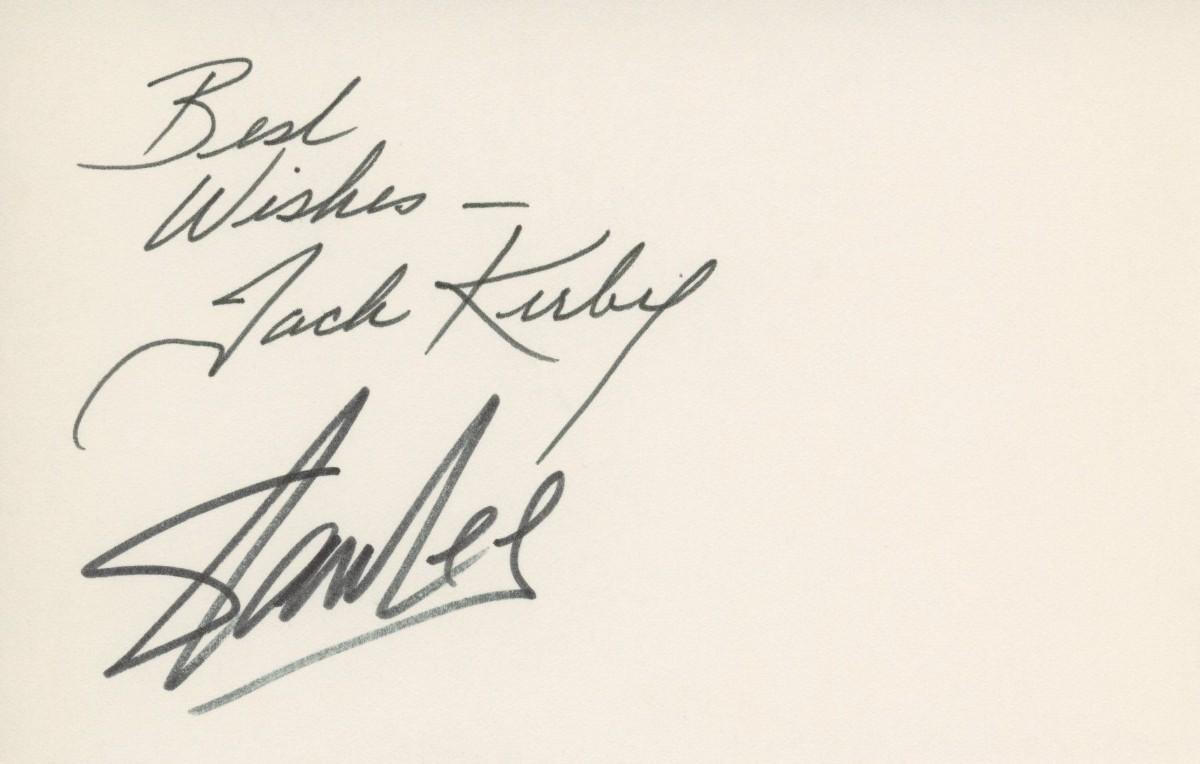 Best
Wishes –
Jack Kirby
Stan Lee